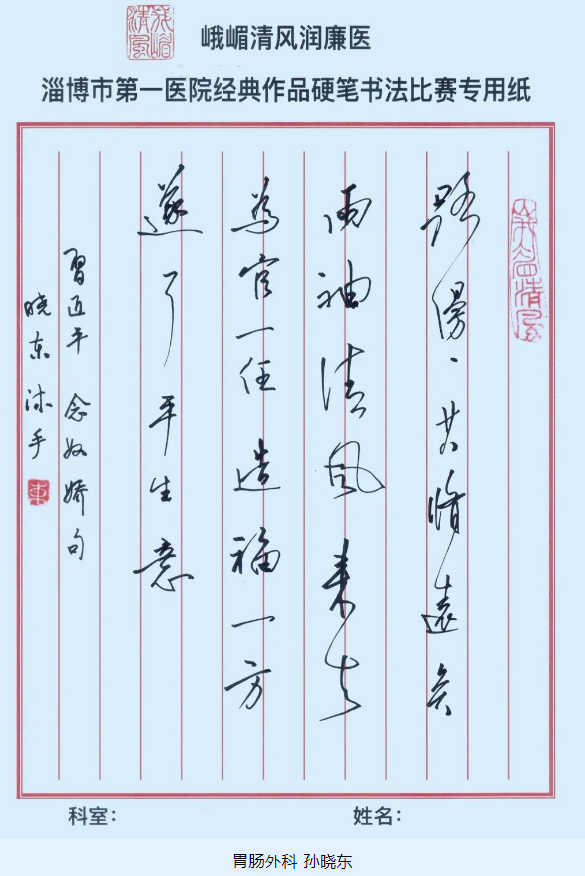 峨嵋清风
峨嵋清风润廉医
淄博市第一医院经典作品硬笔书法比赛专用纸
峨嵋清风
路漫〻其脩遠矣
两袖清风来去
為官一任造福一方
遂了平生意
習近平 念奴娇句
晓东沐手
東
科室：
姓名：
胃肠外科 孙晓东